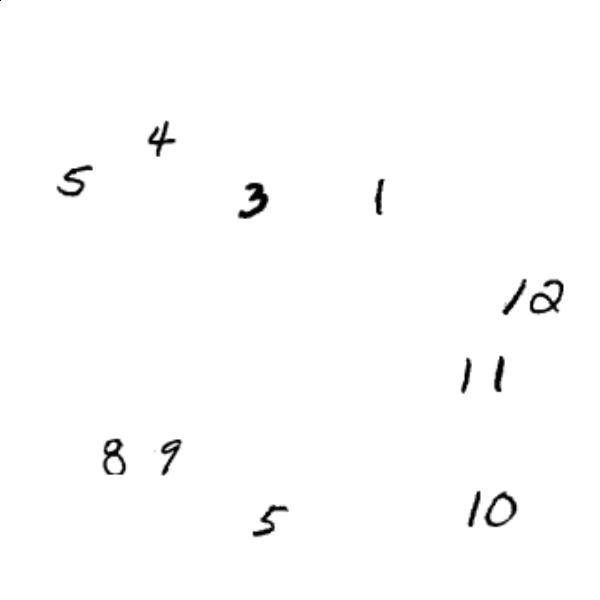 4
5
3 1
12
11
8 9
5 10